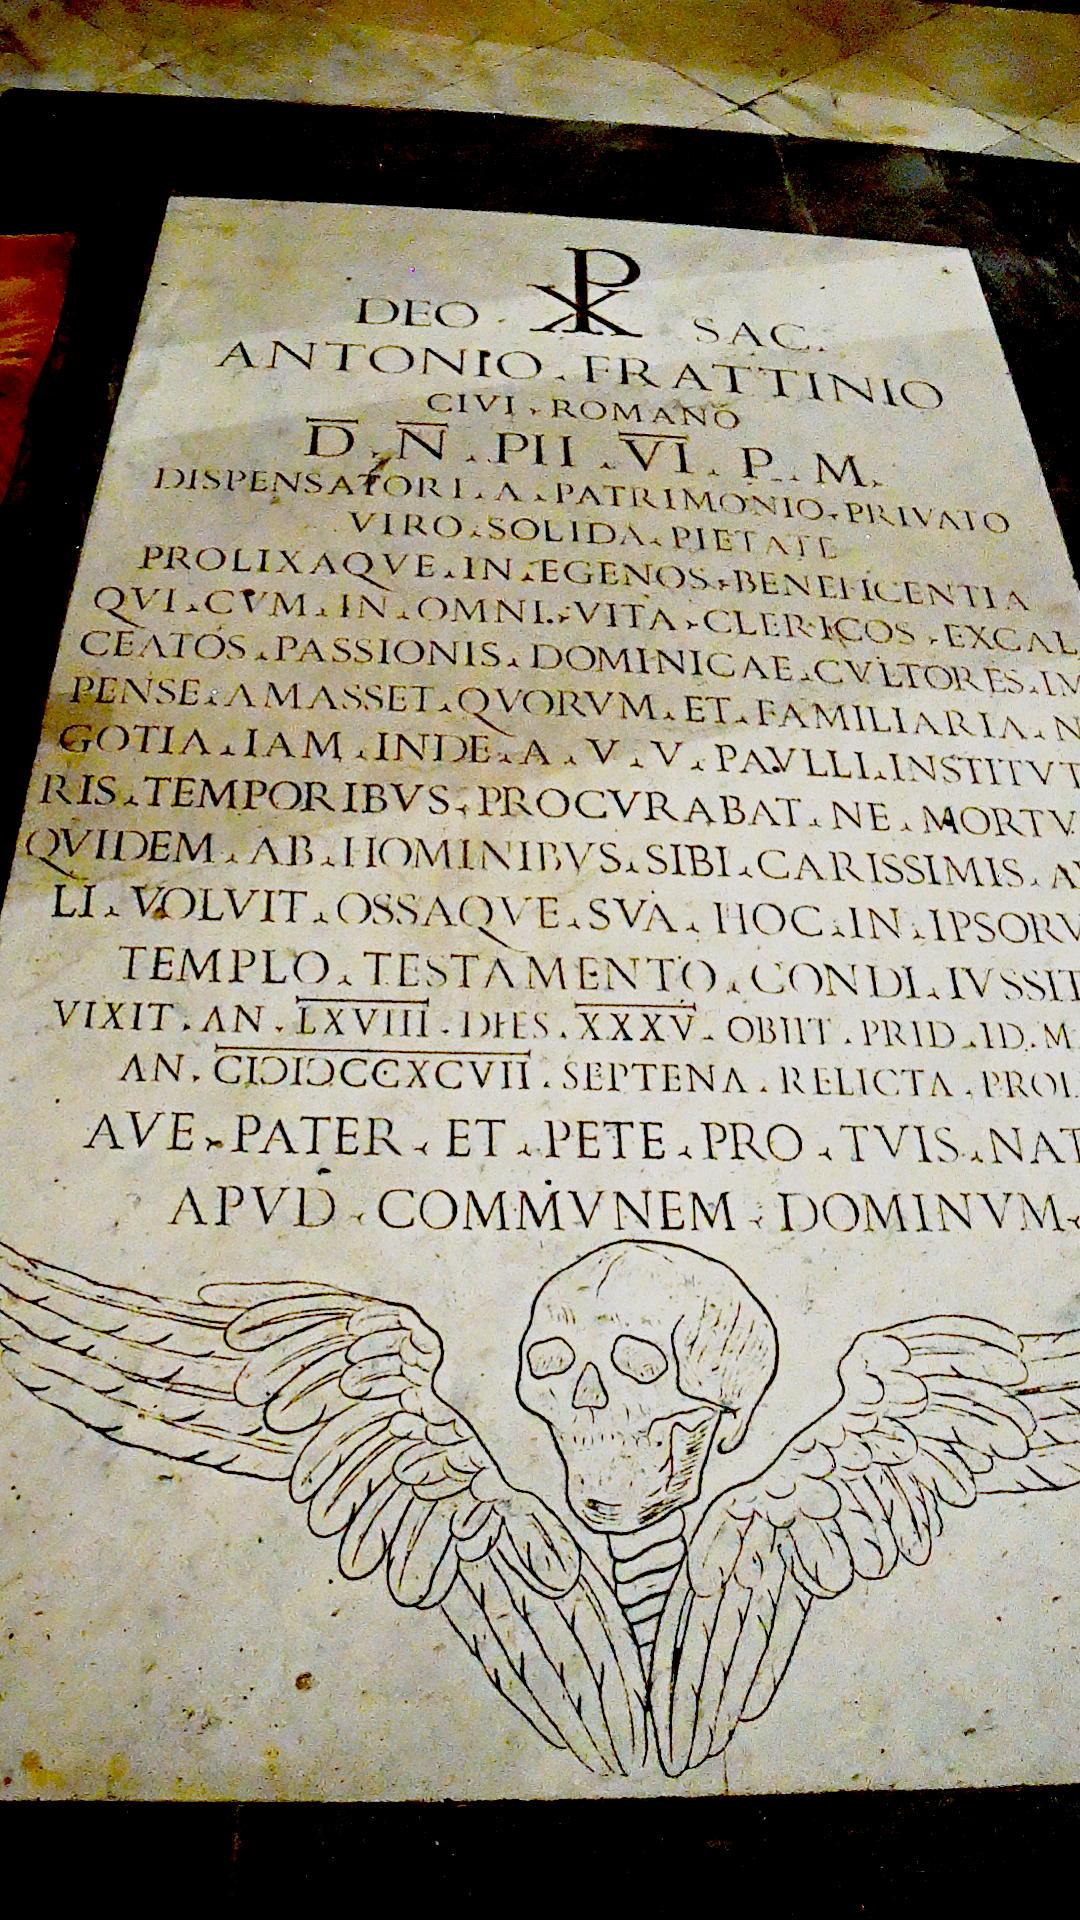 DEO · ☧ SAC.
ANTONIO . FRATTINIO
CIVI . ROMANO
D . N . PII . VI . P . M .
DISPENSATORI . A . PATRIMONIO . PRIVATO
VIRO . SOLIDA . PIETATE
PROLIXAQVE . IN . EGENOS . BENEFICENTIA
QVI . CVM . IN . OMNI . VITA . CLERICOS . EXCAL
CEATOS . PASSIONIS . DOMINICAE . CVLTORES . IM
PENSE . AMASSET . QVORVM . ET . FAMILIARIA . N
GOTIA . IAM . INDE . A . V . V . PAVLLI . INSTITVT
RIS . TEMPORIBVS . PROCVRABAT . NE . MORTV
QVIDEM . AB . HOMINIBVS . SIBI . CARISSIMIS . AV
LI . VOLVIT . OSSAQVE . SVA . HOC . IN . IPSORV
TEMPLO . TESTAMENTO . CONDI . IVSSIT
VIXIT . AN . LXVIIII . DIES . XXXV . OBIIT . PRID . ID . M
AN . CIƆIƆCCXCVII . SEPTENA . RELICTA . PROL
AVE . PATER . ET . PETE . PRO . TVIS . NAT
APVD . COMMVNEM . DOMINVM .